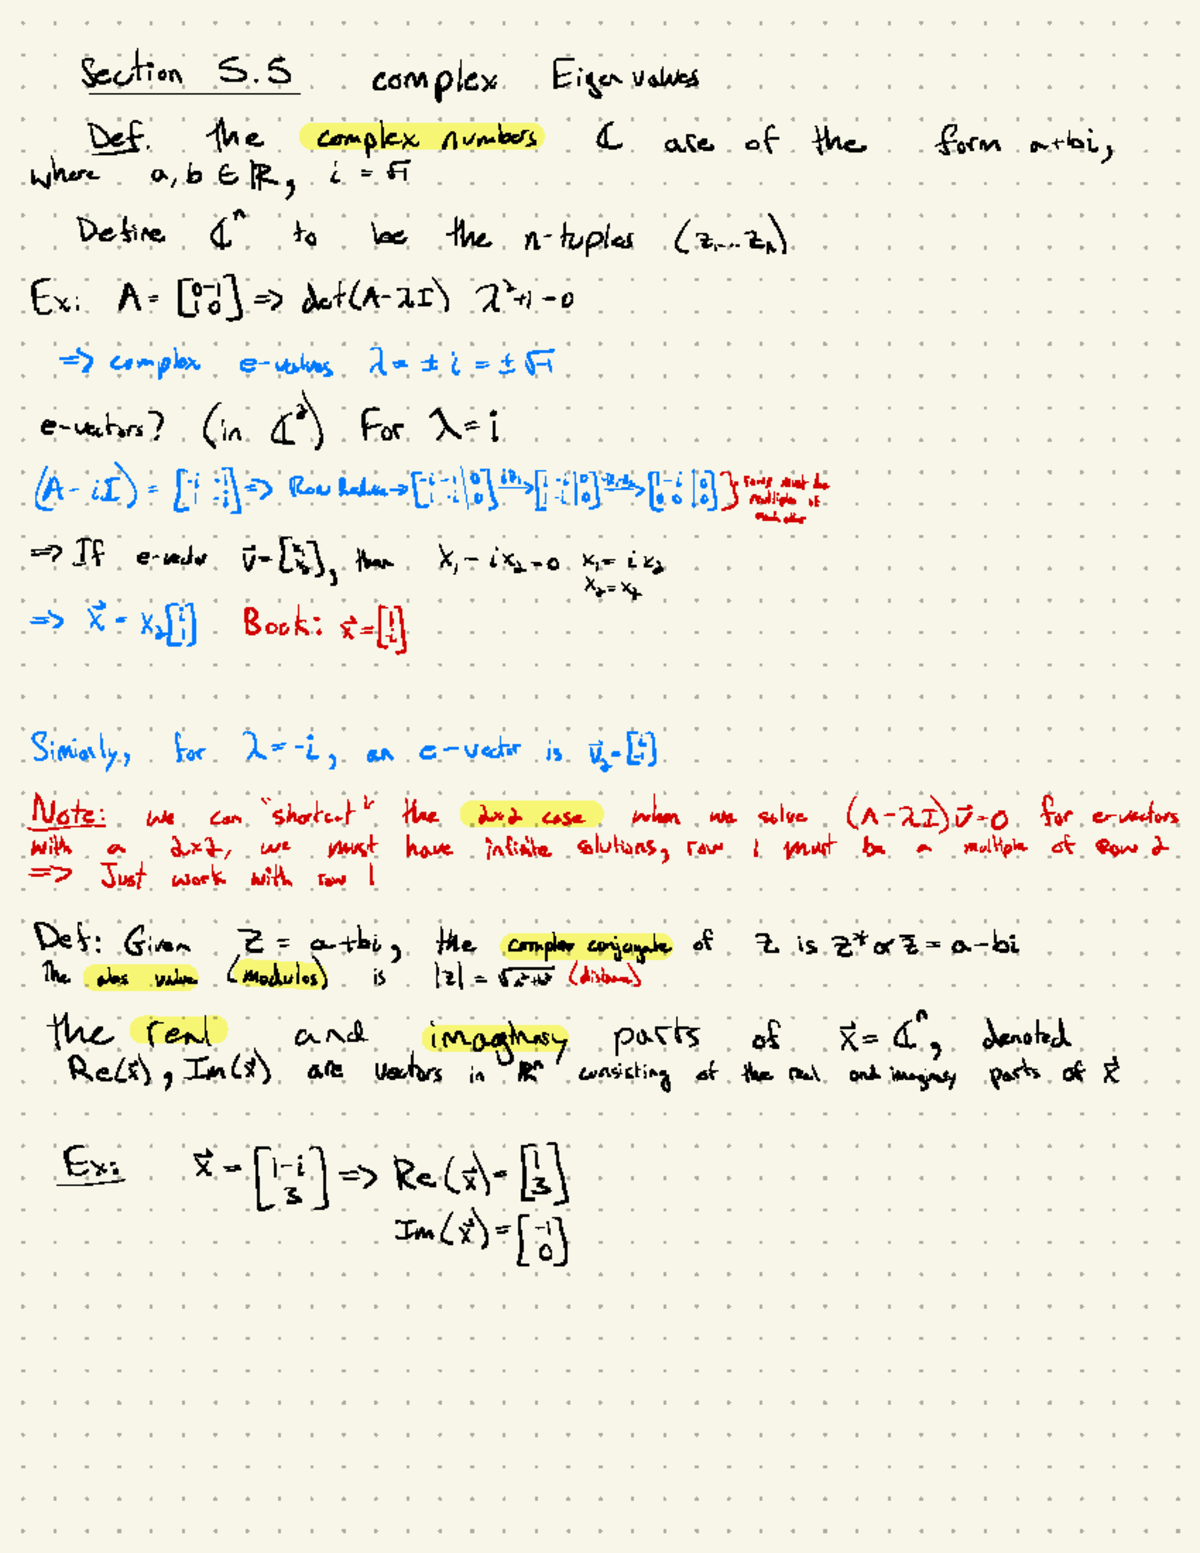 Section 5.5 complex Eigen values
Def. the complex numbers ℂ are of the form a+bi,
where a, b ∈ ℝ, i = √-1
Define ℂⁿ to be the n-tuples (z₁...zₙ)
Ex: A = [0 -1; 1 0] => det(A-λI) λ²+1=0
=> complex e-values λ = ± i = ± √-1
e-vectors? (in ℂ²) For λ = i
(A - iI) = [-i -1; 1 -i] => Row Reduce → [-i -1 | 0; 1 -i | 0] → [1 -i | 0; 1 -i | 0] → [1 -i | 0; 0 0 | 0] } rows must be
multiple of
each other
=> If e-vector v⃗ = [x₁; x₂], then x₁ - ix₂ = 0 x₁ = i x₂
x₂ = x₂
=> x⃗ = x₂[i; 1] Book: x⃗ = [1; -i]
Simiarly, for λ = -i, an e-vector is v⃗₂ =
Note: we can "shortcut" the 2x2 case when we solve (A-λI)v⃗=0 for e-vectors
with a 2x2, we must have infinite solutions, row 1 must be a multiple of row 2
=> Just work with row 1
Def: Given z = a+bi, the complex conjugate of z is z* or z̄ = a-bi
The abs value (modulos) is |z| = √a²+b² (distance)
the real and imaginary parts of x⃗ = ℂⁿ, denoted
Re(x⃗), Im(x⃗) are vectors in ℝⁿ consisting of the real and imaginary parts of x⃗
Ex: x⃗ = [1-i; 3] => Re(x⃗) = [1; 3]
Im(x⃗) = [-1; 0]